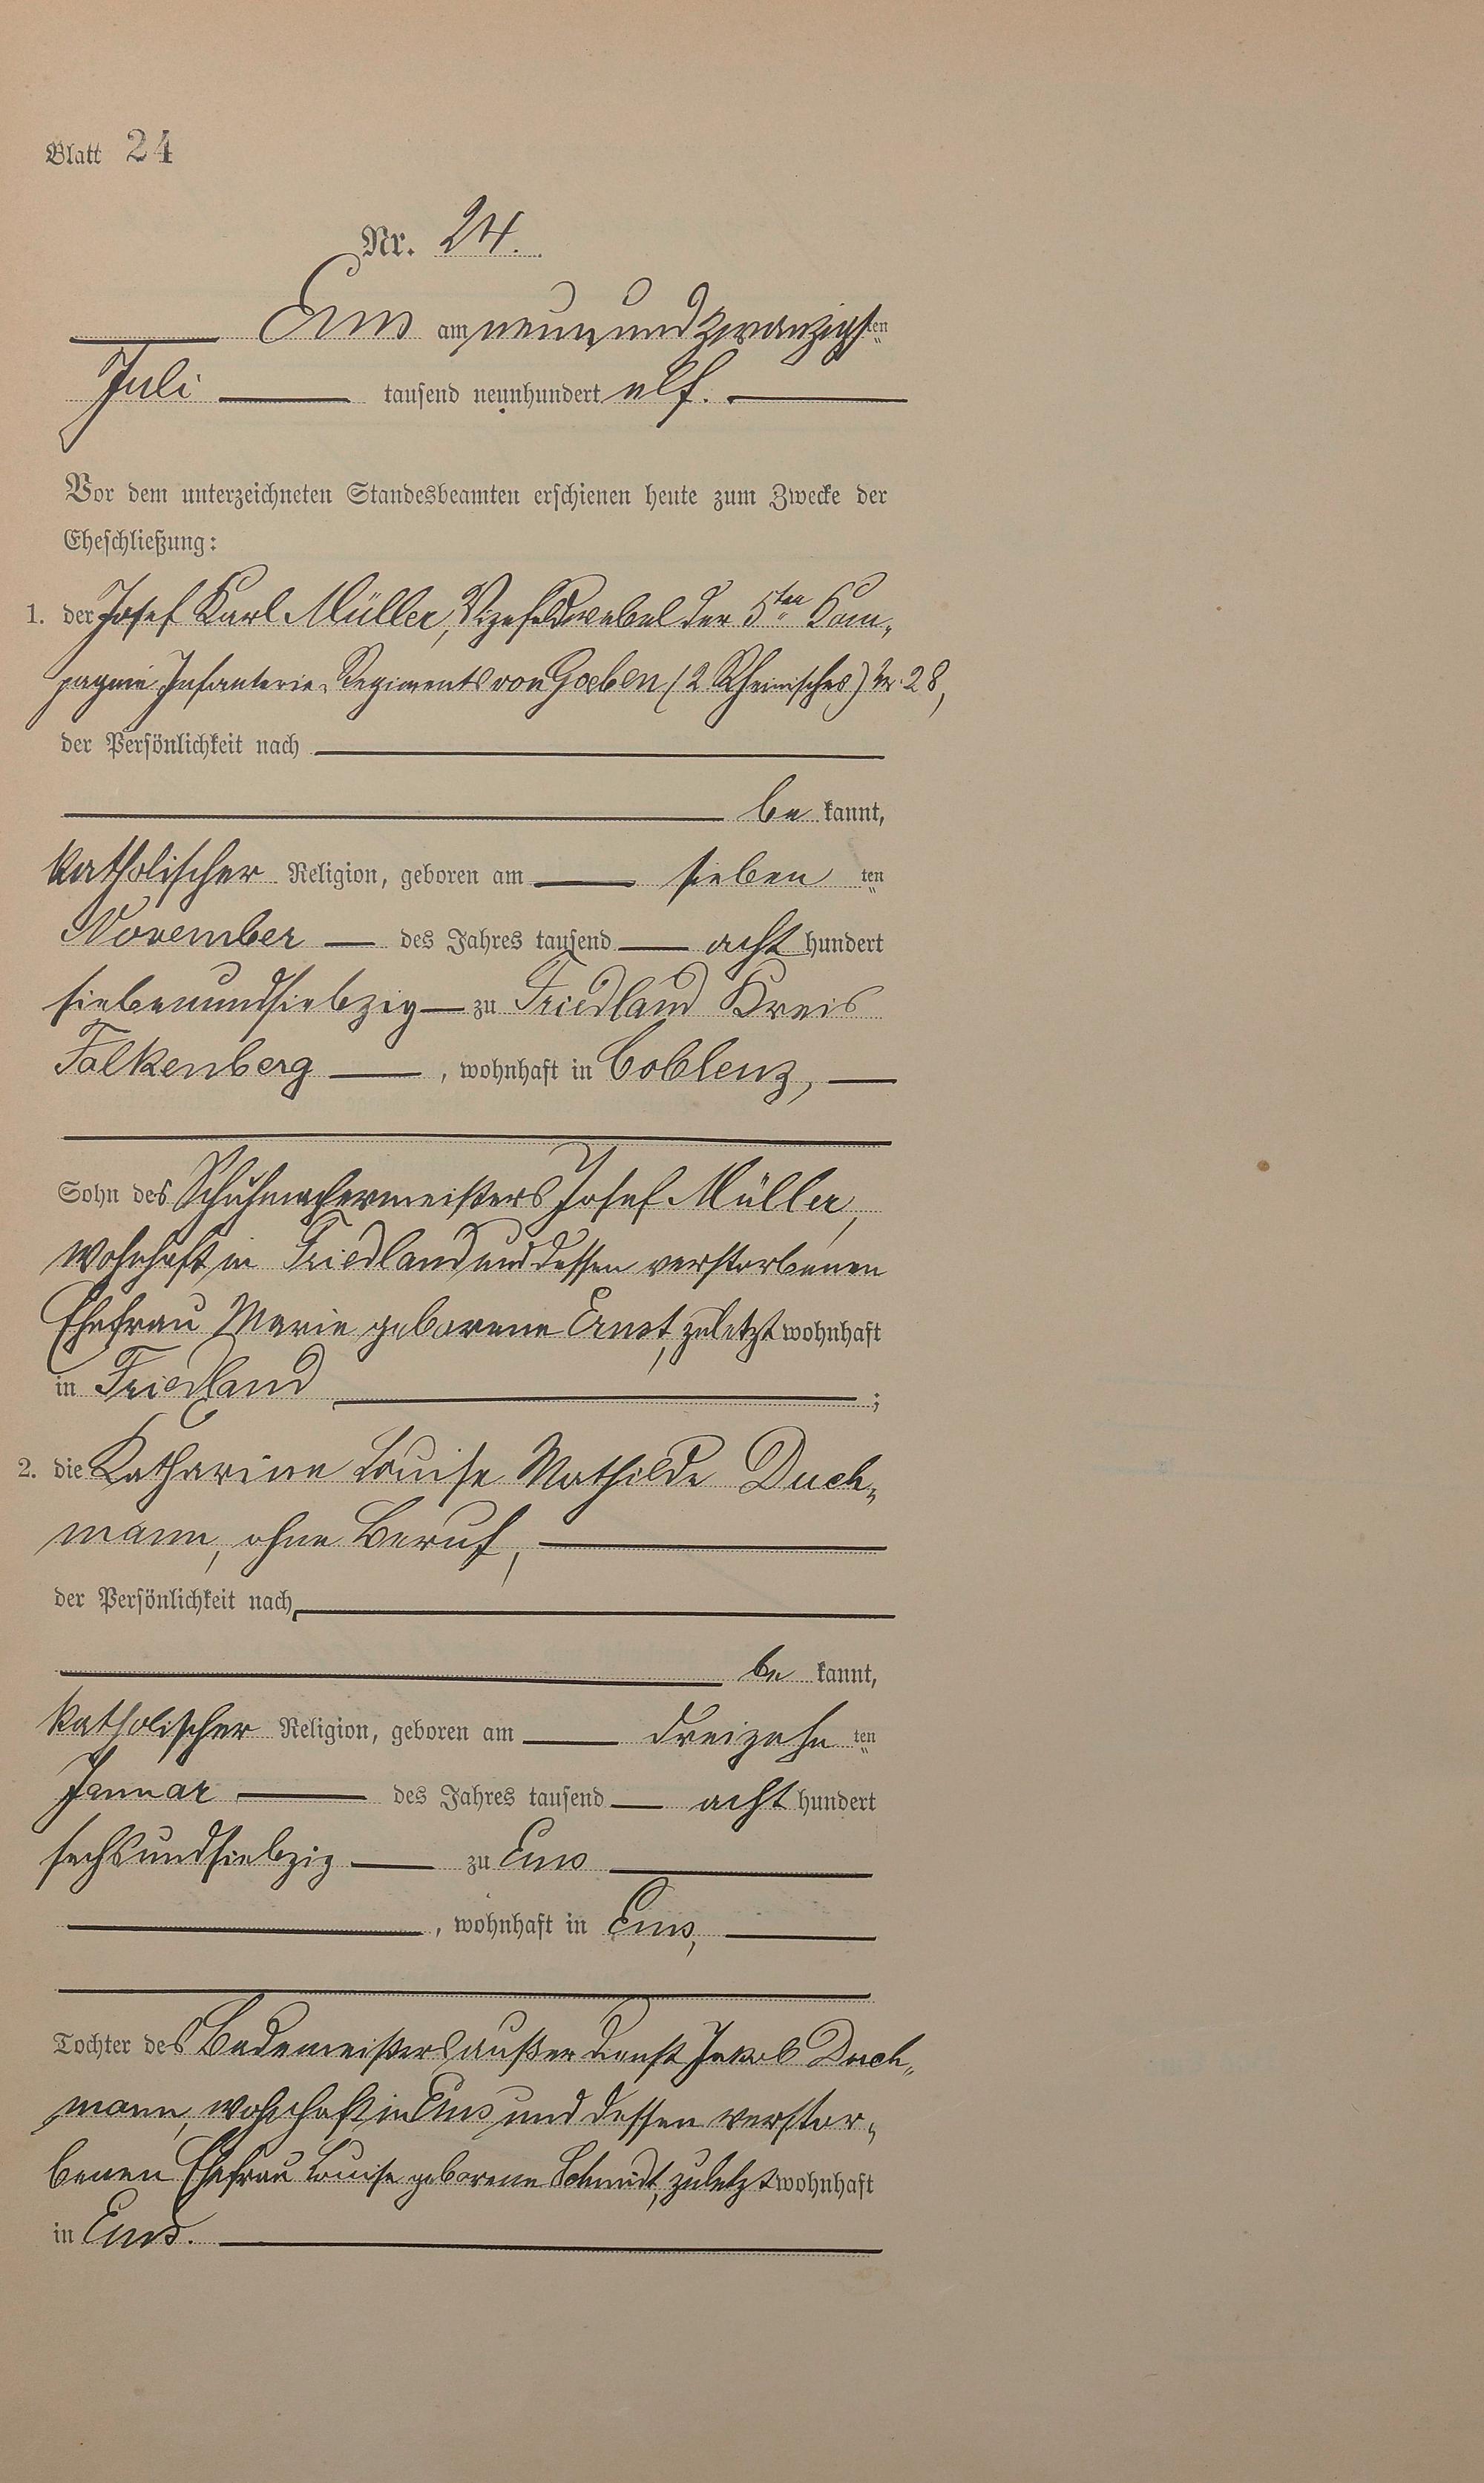 Blatt 24
Nr. 24.
Ems am neunundzwanzigsten
Juli tausend neunhundert elf.
Vor dem unterzeichneten Standesbeamten erschienen heute zum Zwecke der
Eheschließung:
1. der Josef Karl Müller, Vizefeldwebel der 5ten Kom„
pagnie Infanterie-Regiments von Goeben (2 Rheinisches) Nr. 28,
der Persönlichkeit nach
be kannt,
katholischer Religion, geboren am sieben ten
November des Jahres tausend acht hundert
siebenundsiebzig zu Friedland Kreis
Falkenberg, wohnhaft in Coblenz,
Sohn des Schuhmachermeisters Josef Müller,
wohnhaft in Friedland und dessen verstorbenen
Ehefrau Marie geborene Ernst, zuletzt wohnhaft
in Friedland ;
2. die Katharine Louise Mathilde Duch„
mann, ohne Beruf,
der Persönlichkeit nach
be kannt,
katholischer Religion, geboren am dreizehn ten
Januar des Jahres tausend acht hundert
sechsundsiebzig zu Ems
, wohnhaft in Ems,
Tochter des Bademeisters außer Dienst Jakob Duch„
mann, wohnhaft in Ems und dessen verstor„
benen Ehefrau Louise geborene Schmidt, zuletzt wohnhaft
in Ems.